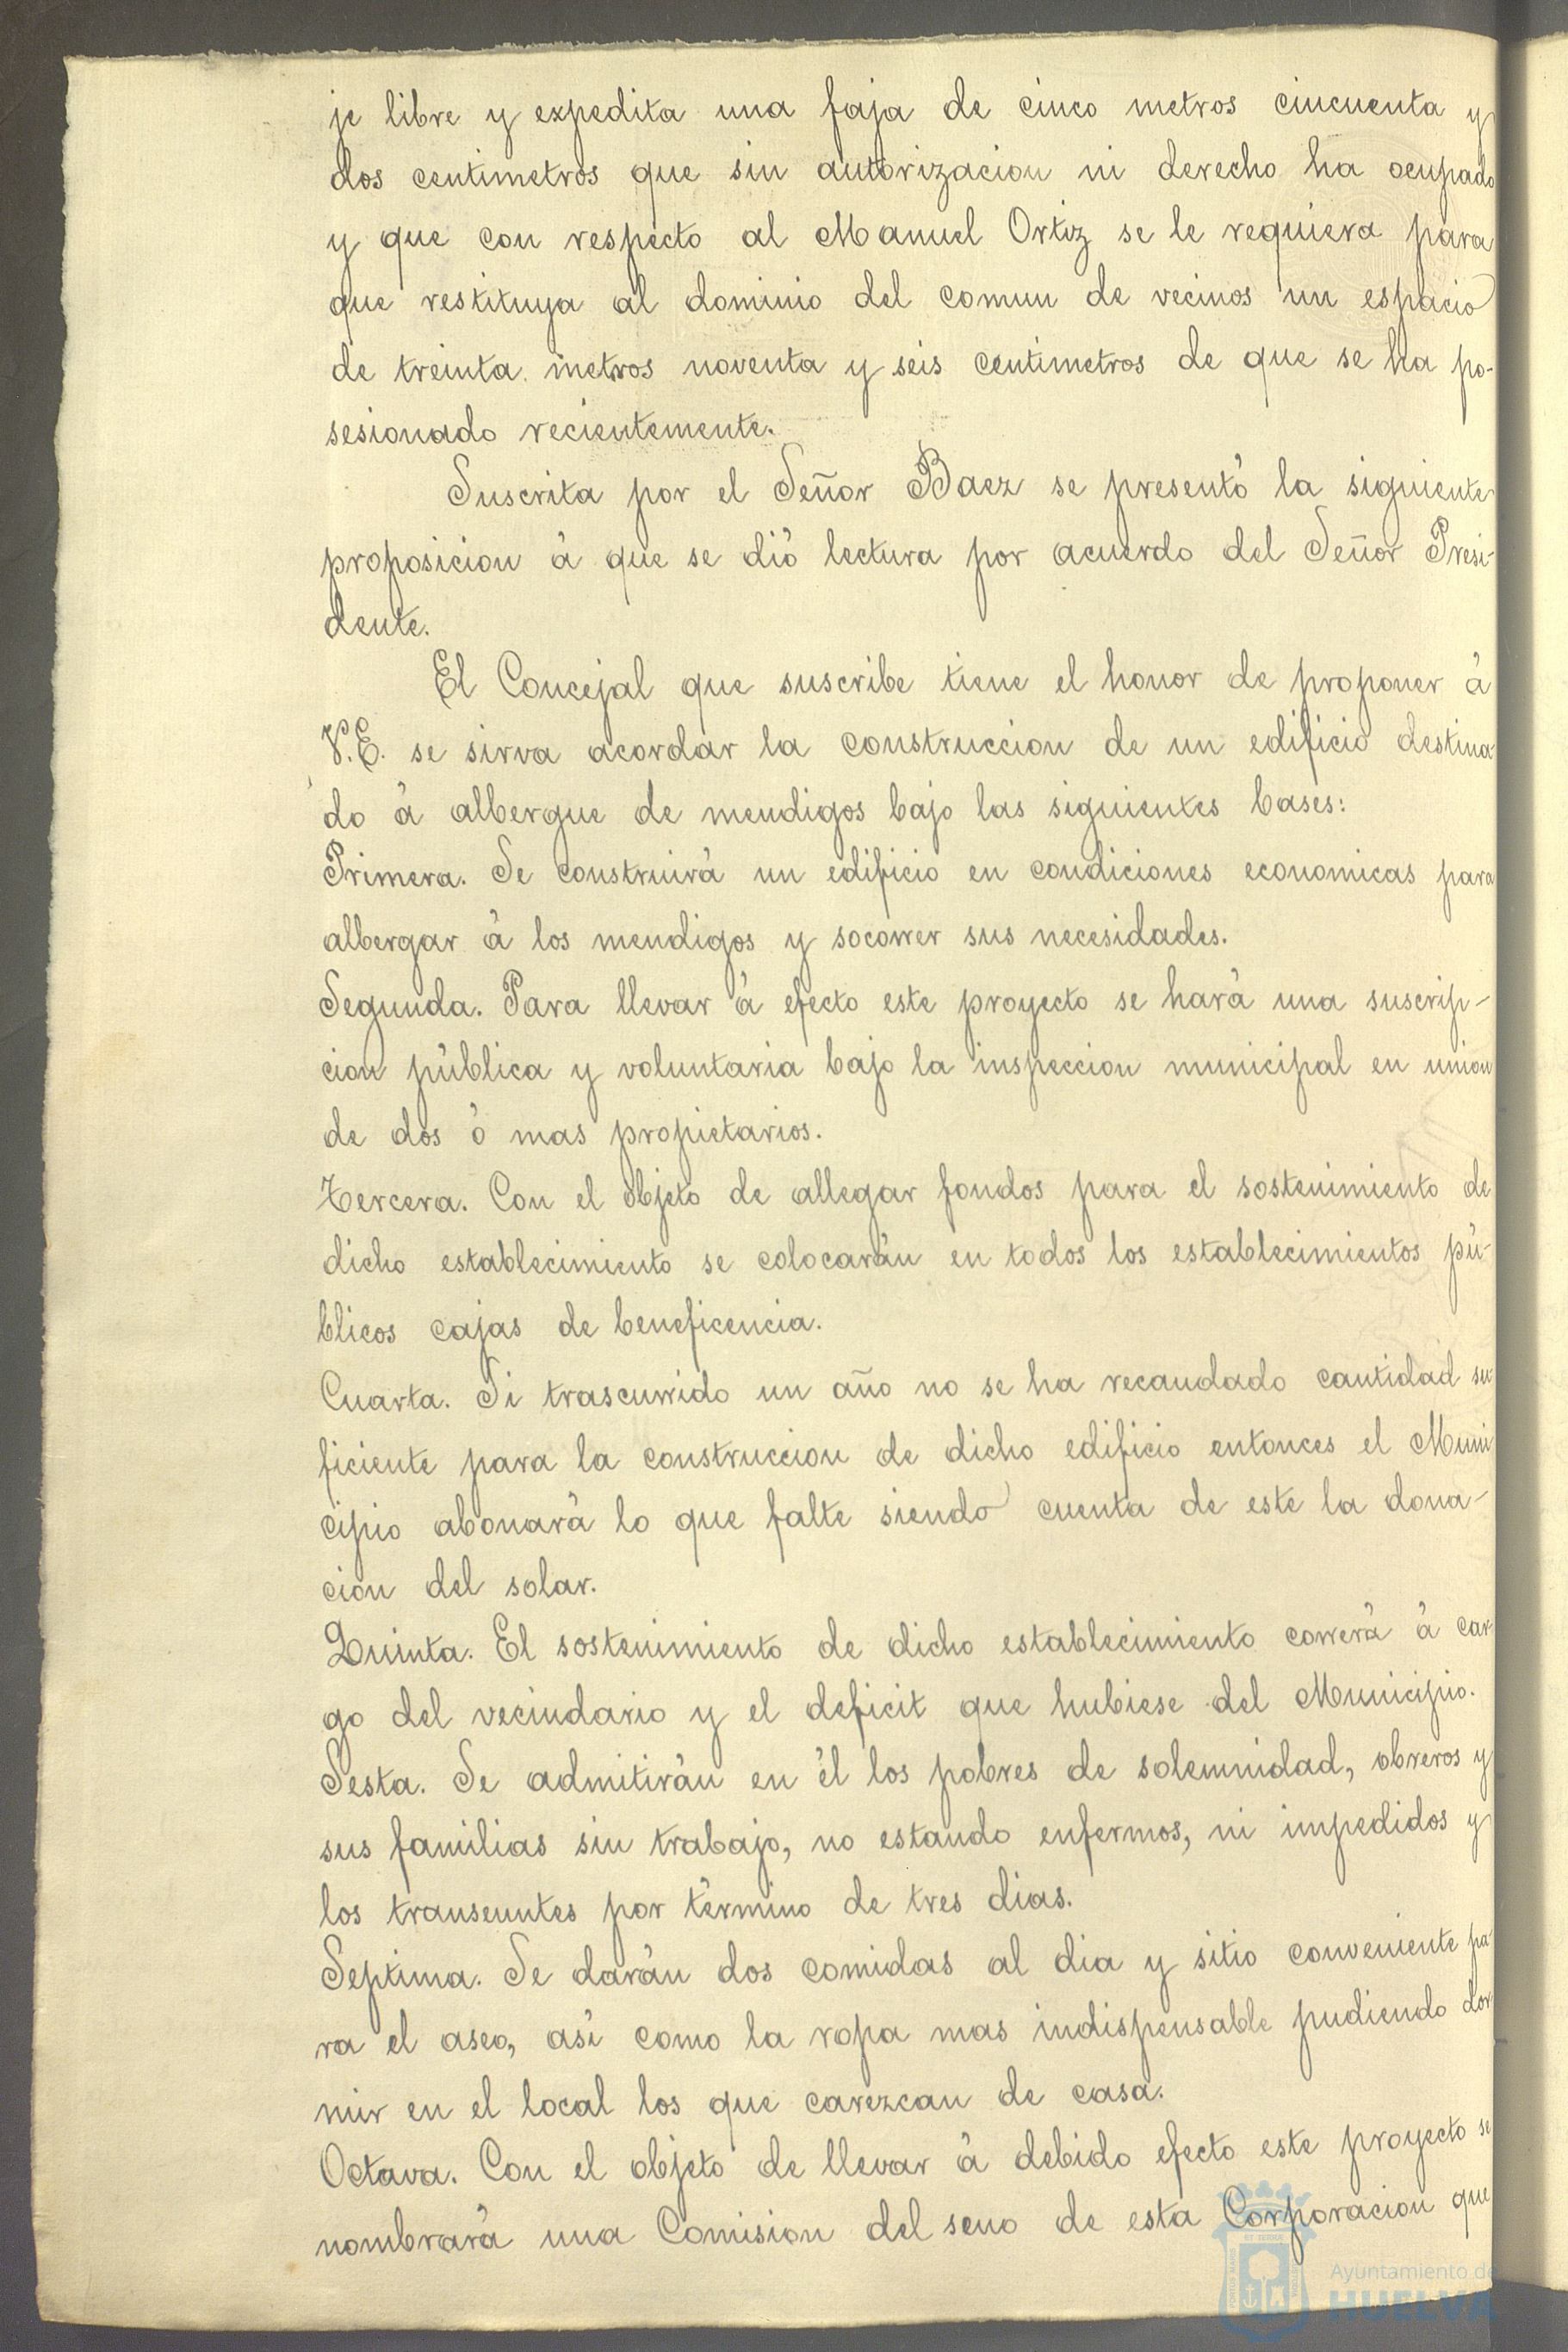 je libre y expedita una faja de cinco metros cincuenta y
dos centimetros que sin autorizacion ni derecho ha ocupado
y que con respecto al Manuel Ortiz se le requiera para
que restituya al dominio del comun de vecinos un espacio
de treinta metros noventa y seis centimetros de que se ha po-
sesionado recientemente.
Suscrita por el Señor Baez se presentó la siguiente
proposicion á que se dió lectura por acuerdo del Señor Presi-
dente.
El Concejal que suscribe tiene el honor de proponer á
V.E. se sirva acordar la construccion de un edificio destina-
do á albergue de mendigos bajo las siguientes bases:
Primera. Se construirá un edificio en condiciones economicas para
albergar á los mendigos y socorrer sus necesidades.
Segunda. Para llevar á efecto este proyecto se hará una suscrip-
cion pública y voluntaria bajo la inspeccion municipal en union
de dos ó mas propietarios.
Tercera. Con el objeto de allegar fondos para el sostenimiento de
dicho establecimiento se colocarán en todos los establecimientos pú-
blicos cajas de beneficencia.
Cuarta. Si trascurrido un año no se ha recaudado cantidad su-
ficiente para la construccion de dicho edificio entonces el Muni
cipio abonará lo que falte siendo cuenta de este la dona-
cion del solar.
Quinta. El sostenimiento de dicho establecimiento correrá á car
go del vecindario y el deficit que hubiese del Municipio.
Sesta. Se admitirán en él los pobres de solemnidad, obreros y
sus familias sin trabajo, no estando enfermos, ni impedidos y
los transeuntes por término de tres dias.
Septima. Se darán dos comidas al dia y sitio conveniente pa-
ra el aseo, así como la ropa mas indispensable pudiendo dor
mir en el local los que carezcan de casa.
Octava. Con el objeto de llevar á debido efecto este proyecto se
nombrará una Comision del seno de esta Corporacion que
Ayuntamiento de
HUELVA